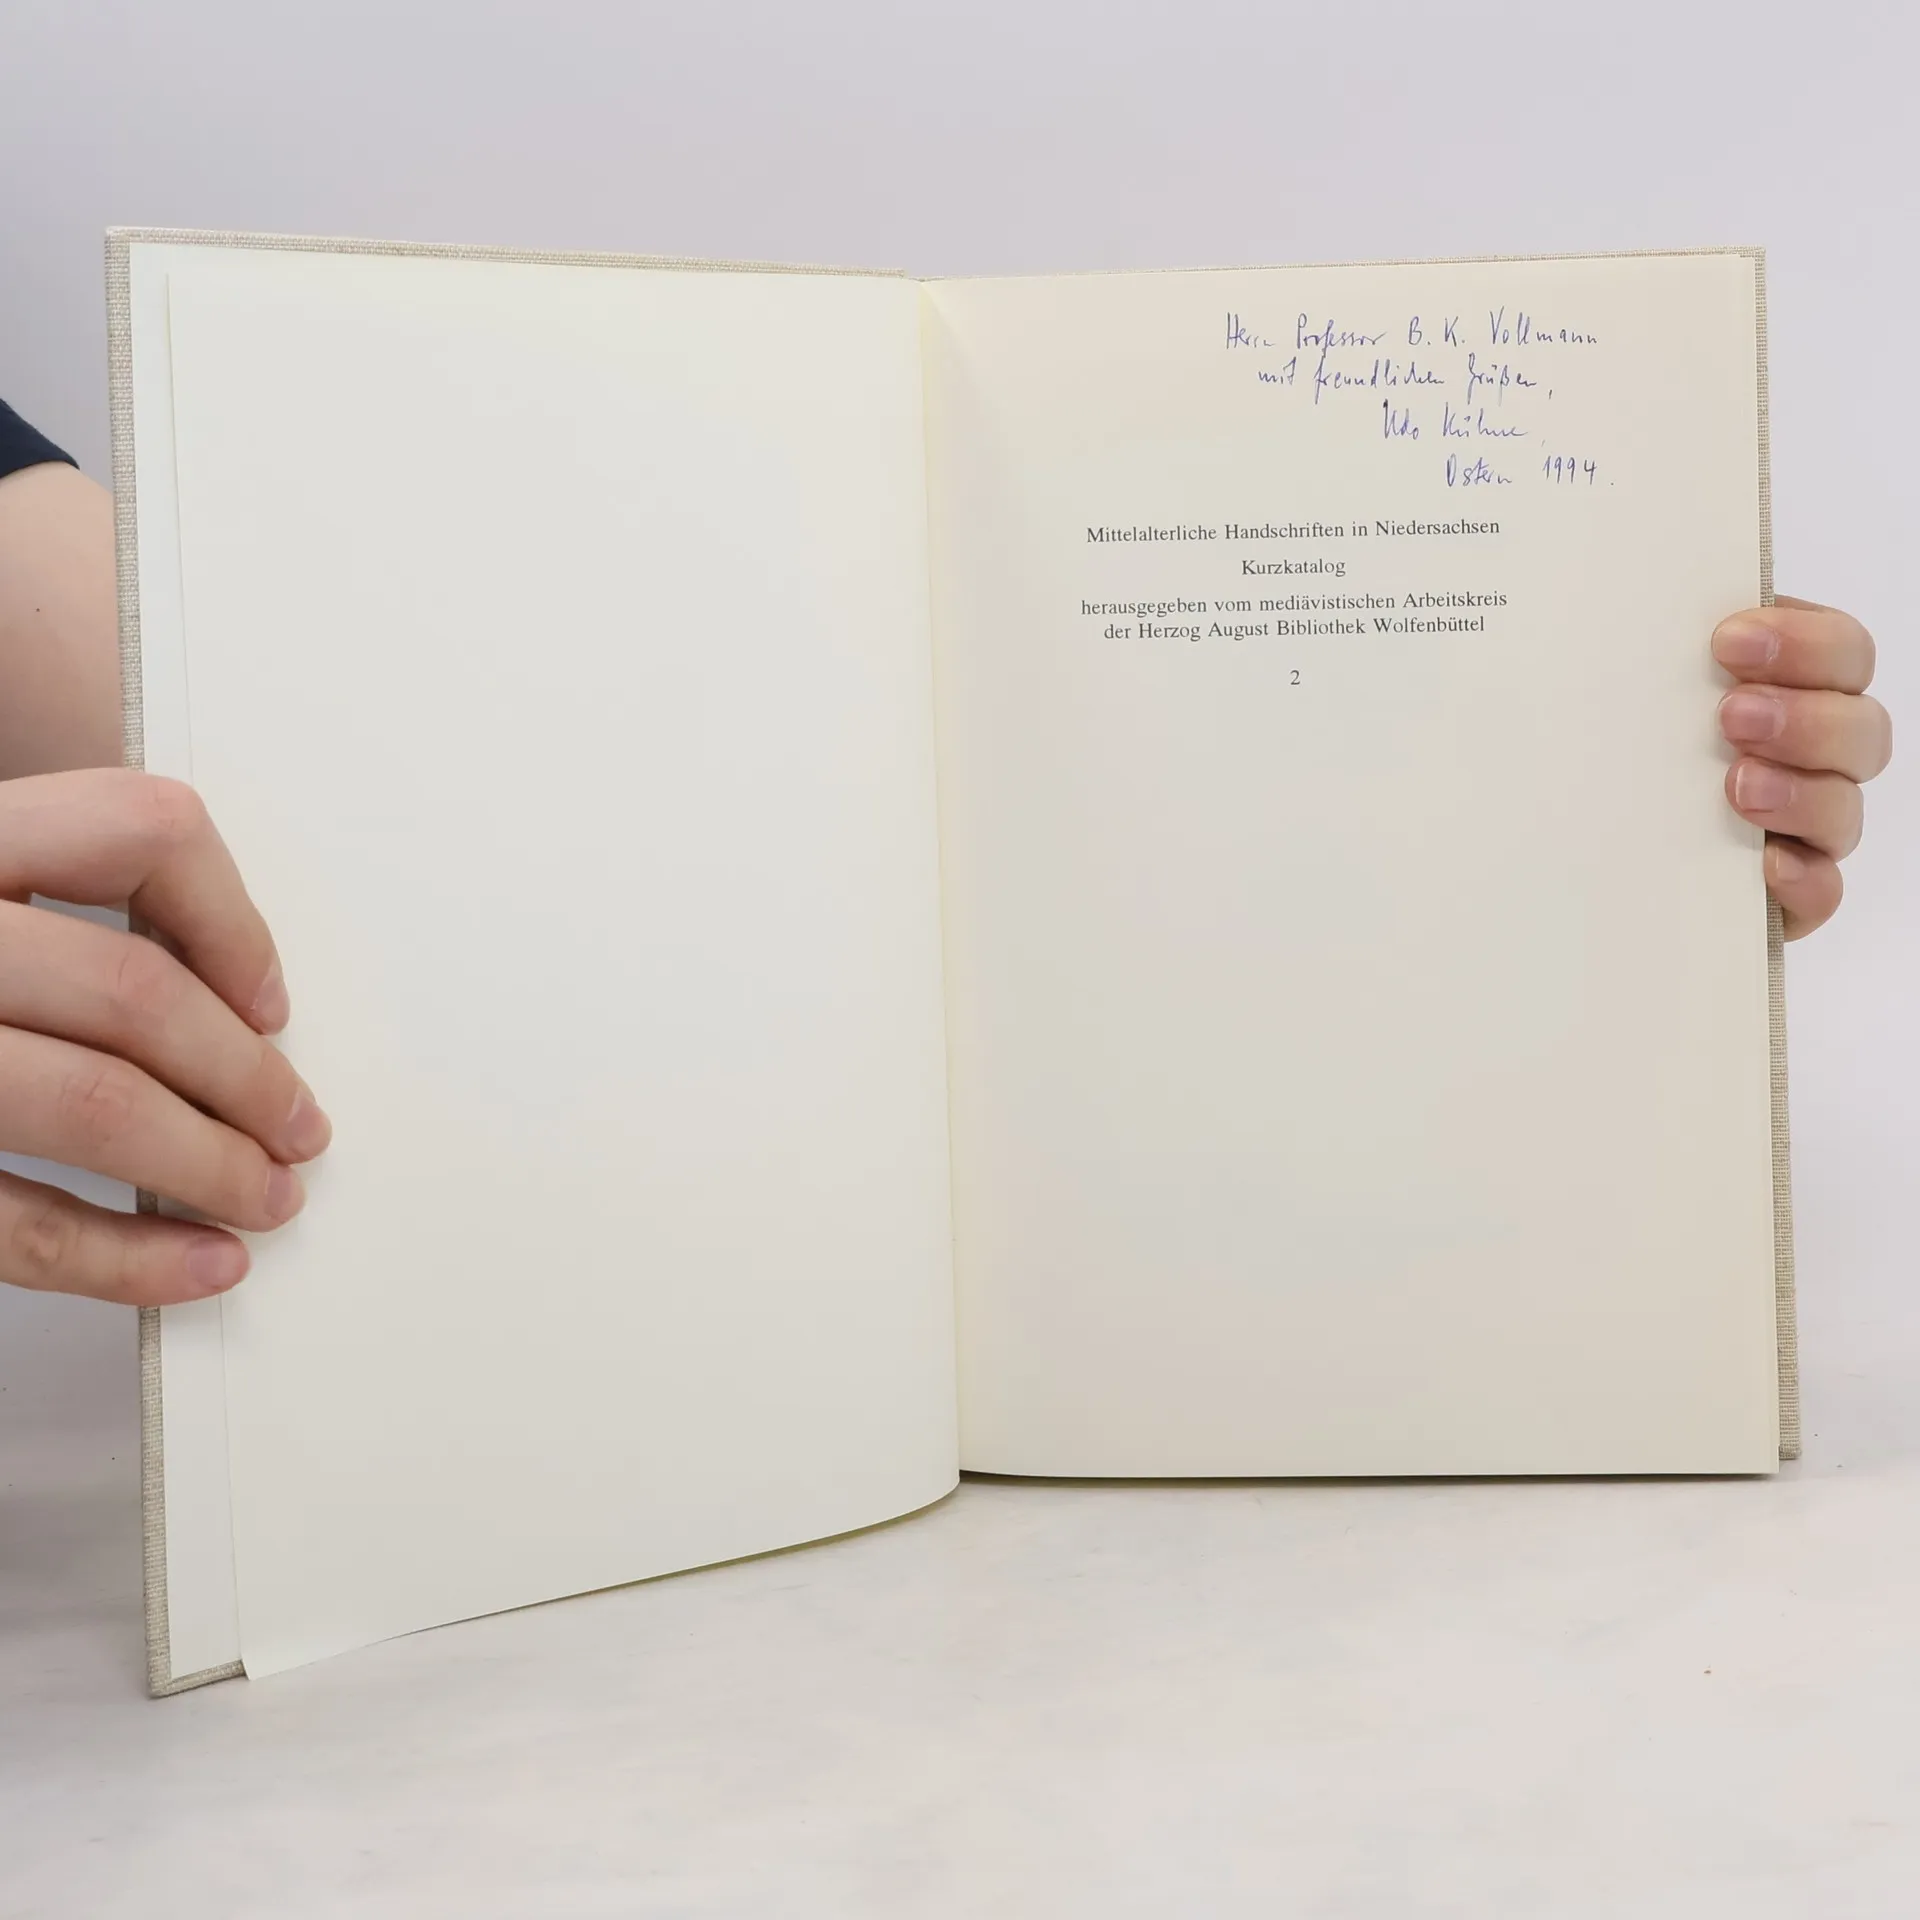 Herrn Professor B. K. Vollmann
mit freundlichen Grüßen,
Udo Kühne,
Ostern 1994.
Mittelalterliche Handschriften in Niedersachsen
Kurzkatalog
herausgegeben vom mediävistischen Arbeitskreis
der Herzog August Bibliothek Wolfenbüttel
2